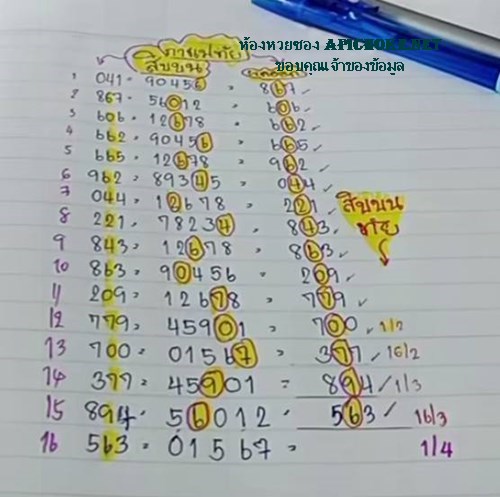 ห้องหวยซอง APICHOKE.NET
ขอบคุณเจ้าของข้อมูล
สิบบน
1 041 - 90456 = 867 ✓
2 867 - 56012 = 606 ✓
3 606 - 12678 = 662 ✓
4 662 - 90456 = 665 ✓
5 665 - 12678 = 962 ✓
6 962 - 89345 = 044 ✓
7 044 - 12678 = 221 ✓
8 221 - 78234 = 843 ✓
9 843 - 12678 = 863 ✓
10 863 - 90456 = 209 ✓
11 209 = 12678 = 779 ✓
12 779 = 45901 = 700 ✓ 1/2
13 700 = 01567 = 377 / 16/2
14 377 = 45901 = 894 / 1/3
15 894 - 56012 - 563 / 16/3
16 563 = 01567 = 1/4
สิบบน